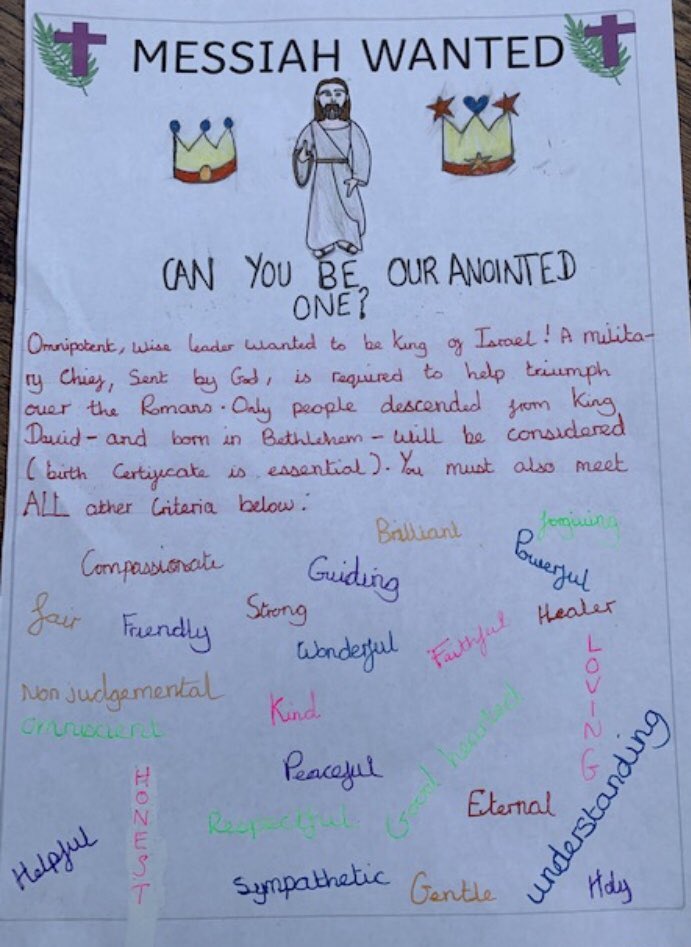 MESSIAH WANTED
CAN YOU BE OUR ANOINTED
ONE?
Omnipotent, wise leader wanted to be King of Israel! A milita-
ry Chief, Sent by God, is required to help triumph
over the Romans. Only people descended from King
David - and born in Bethlehem - will be considered
(birth Certificate is essential). You must also meet
ALL other Criteria below:
Brilliant
forgiving
Compassionate
Guiding
Powerful
fair
Friendly
Strong
Wonderful
Faithful
Healer
LOVING
Non judgemental
Kind
Omniscient
Peaceful
Good hearted
HONEST
Respectful
Eternal
understanding
Helpful
Sympathetic
Gentle
Holy